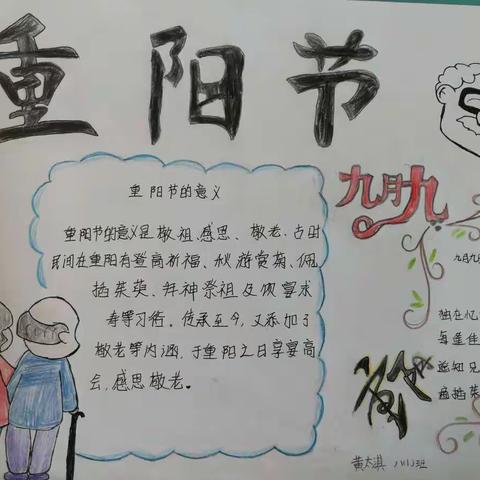 重阳节
重阳节的意义
重阳节的意义是敬祖、感恩、敬老。古时
民间在重阳有登高祈福、秋游赏菊、佩
插茱萸、拜神祭祖及饮宴求
寿等习俗。传承至今,又添加了
敬老等内涵,于重阳之日享宴高
会,感恩敬老。
九月九
九月九
独在
每逢佳
遥知兄
遍插茱
黄大淇 八(1)班